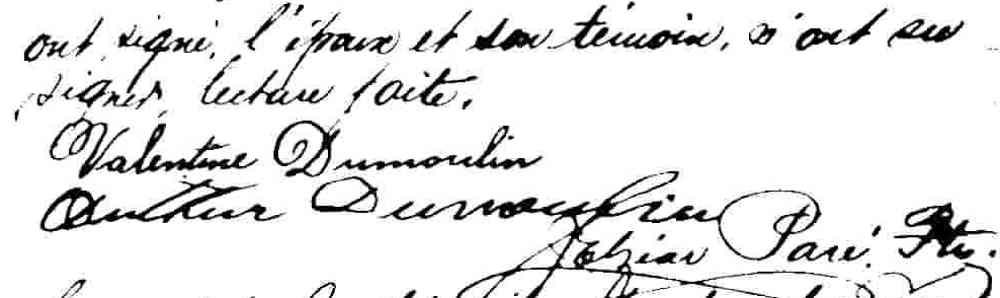 ont signé, l'époux et son témoin, n'ont su
signer, lecture faite.
Valentine Dumoulin
Arthur Dumoulin
Elzéar Paré, Ptre.